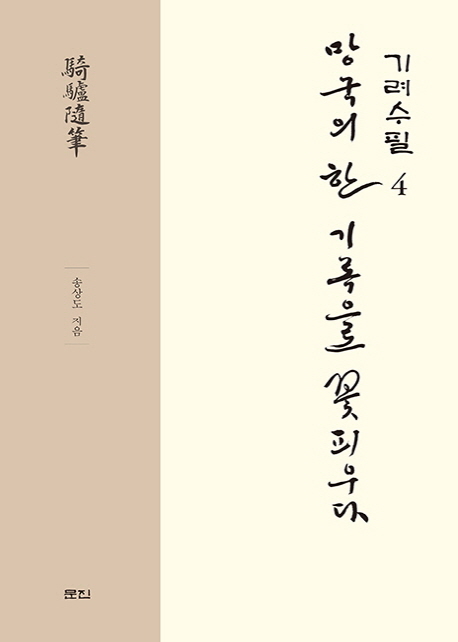 기려수필 4
망국의 한 기록으로 꽃피우다
騎驢隨筆
송상도 지음
문진